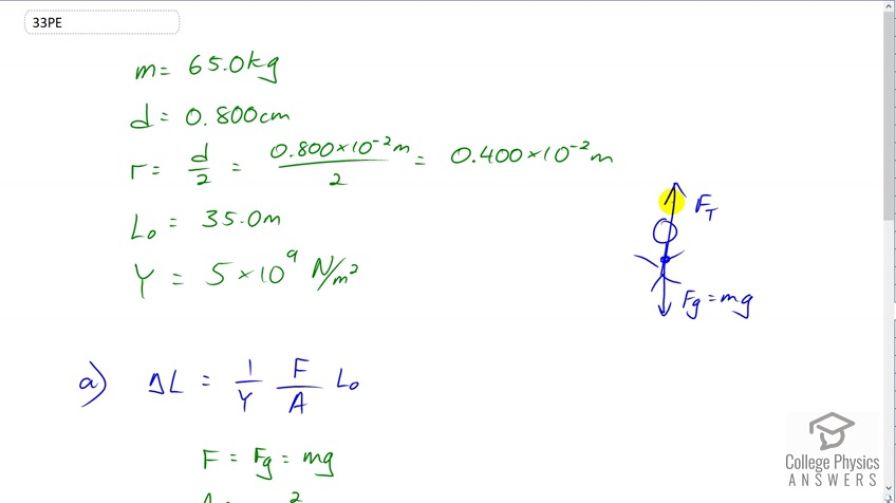 33PE
m = 65.0kg
d = 0.800cm
r = d/2 = 0.800×10⁻²m/2 = 0.400×10⁻²m
L₀ = 35.0m
Y = 5×10⁹ N/m²
F_T
Fg = mg
a) ΔL = 1/Y F/A L₀
F = Fg = mg
College Physics
ANSWERS